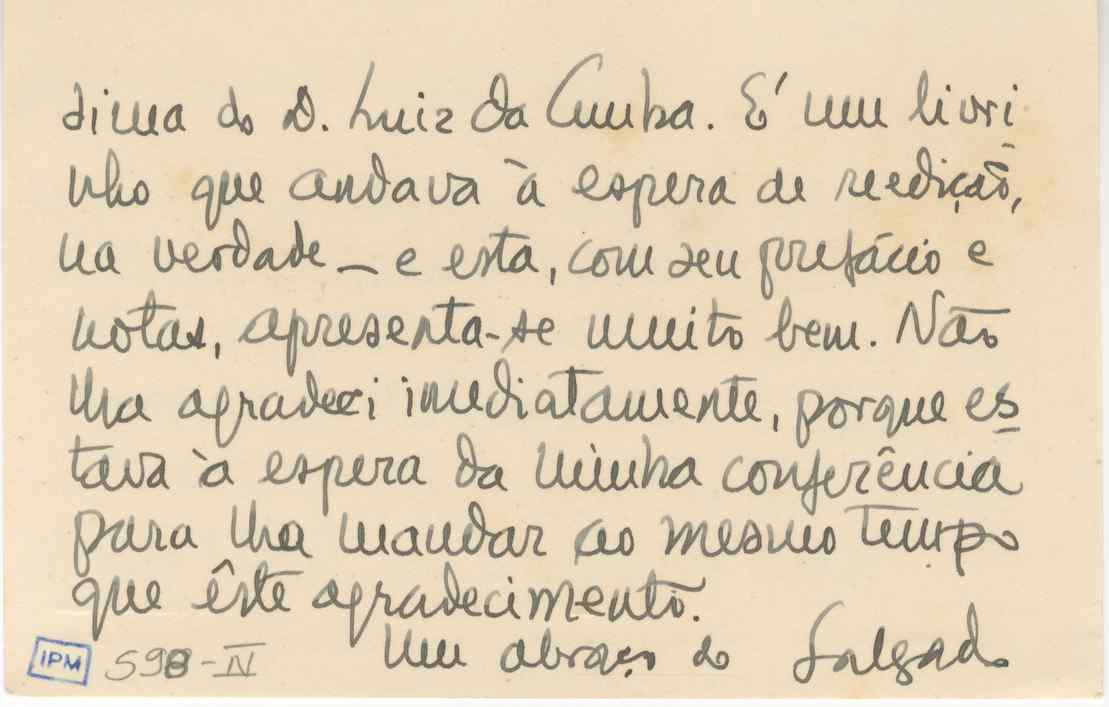 sima do D. Luiz da Cunha. É um livri
nho que andava à espera de reedição,
na verdade – e esta, com seu prefácio e
notas, apresenta-se muito bem. Não
lha agradeci imediatamente, porque es
tava à espera da minha conferência
para lha mandar ao mesmo tempo
que êste agradecimento.
Um abraço do Salgado
IPM 598-IV